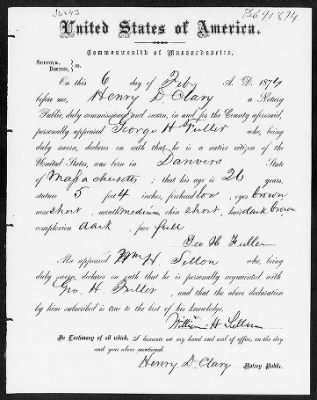 36843
Feb 9 1874
United States of America.
Commonwealth of Massachusetts,
SUFFOLK, } ss.
BOSTON,
On this 6 day of Feby A. D. 1874
before me, Henry D. Clary a Notary
Public, duly commissioned and sworn, in and for the County aforesaid,
personally appeared George H Fuller who, being
duly sworn, declares on oath, that he is a native citizen of the
United States, was born in Danvers State
of Massachusetts; that his age is 26 years,
stature 5 feet 4 inches, forehead low, eyes brown
nose short, mouth medium, chin short, hair dark brown
complexion dark face full
Geo H Fuller
Also appeared Wm H. Sillon who, being
duly sworn, declares on oath that he is personally acquainted with
Geo. H Fuller, and that the above declaration
by him subscribed is true to the best of his knowledge.
William H Sillon
In Testimony of all which, I hereunto set my hand and seal of office, on the day
and year above mentioned.
Henry D. Clary Notary Public.